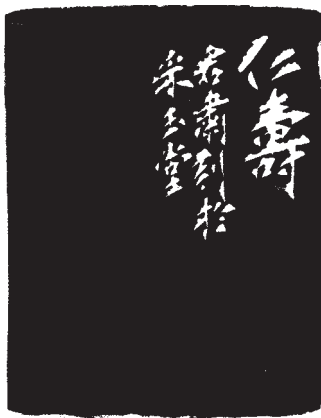 仁壽
君肅刻於
采玉堂